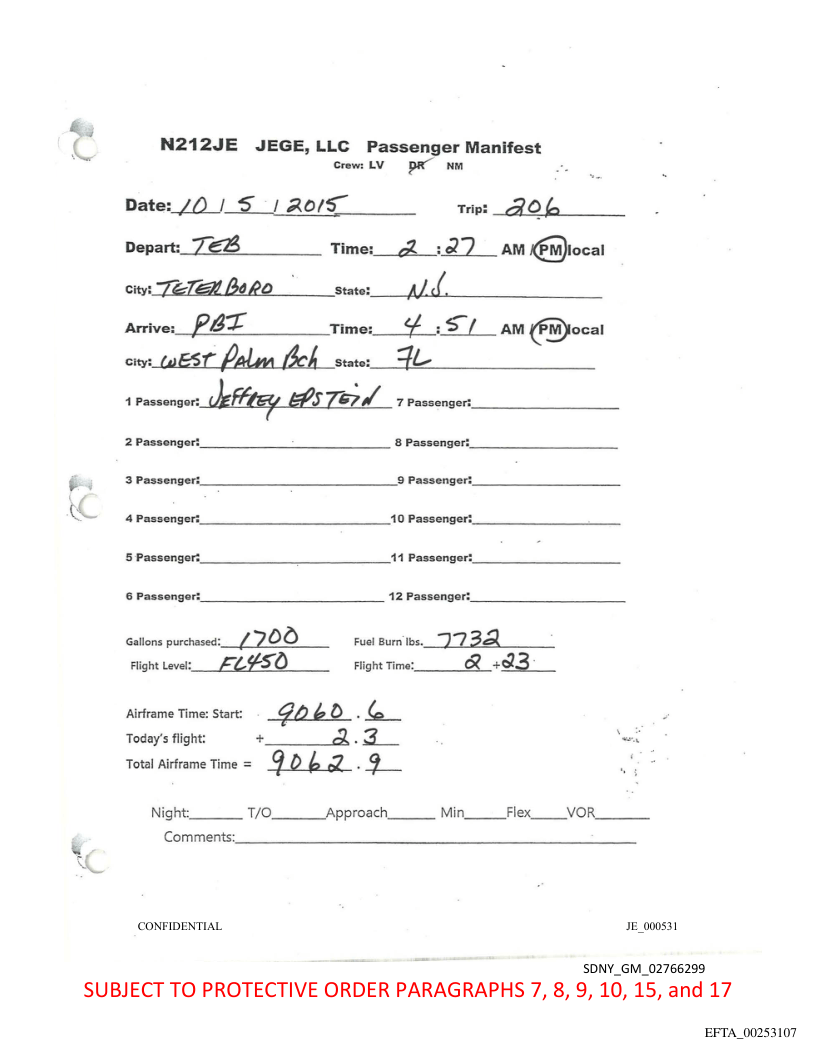 N212JE JEGE, LLC Passenger Manifest
Crew: LV DR NM
Date: 10 / 5 / 2015 Trip: 206
Depart: TEB Time: 2 : 27 AM / PM local
City: TETERBORO State: N.J.
Arrive: PBI Time: 4 : 51 AM / PM local
City: WEST PALM Bch State: FL
1 Passenger: JEFFREY EPSTEIN 7 Passenger:
2 Passenger: 8 Passenger:
3 Passenger: 9 Passenger:
4 Passenger: 10 Passenger:
5 Passenger: 11 Passenger:
6 Passenger: 12 Passenger:
Gallons purchased: 1700 Fuel Burn lbs. 7732
Flight Level: FL450 Flight Time: 2 + 23
Airframe Time: Start: 9060.6
Today's flight: + 2.3
Total Airframe Time = 9062.9
Night: T/O Approach Min Flex VOR
Comments:
CONFIDENTIAL JE_000531
SDNY_GM_02766299
SUBJECT TO PROTECTIVE ORDER PARAGRAPHS 7, 8, 9, 10, 15, and 17
EFTA_00253107